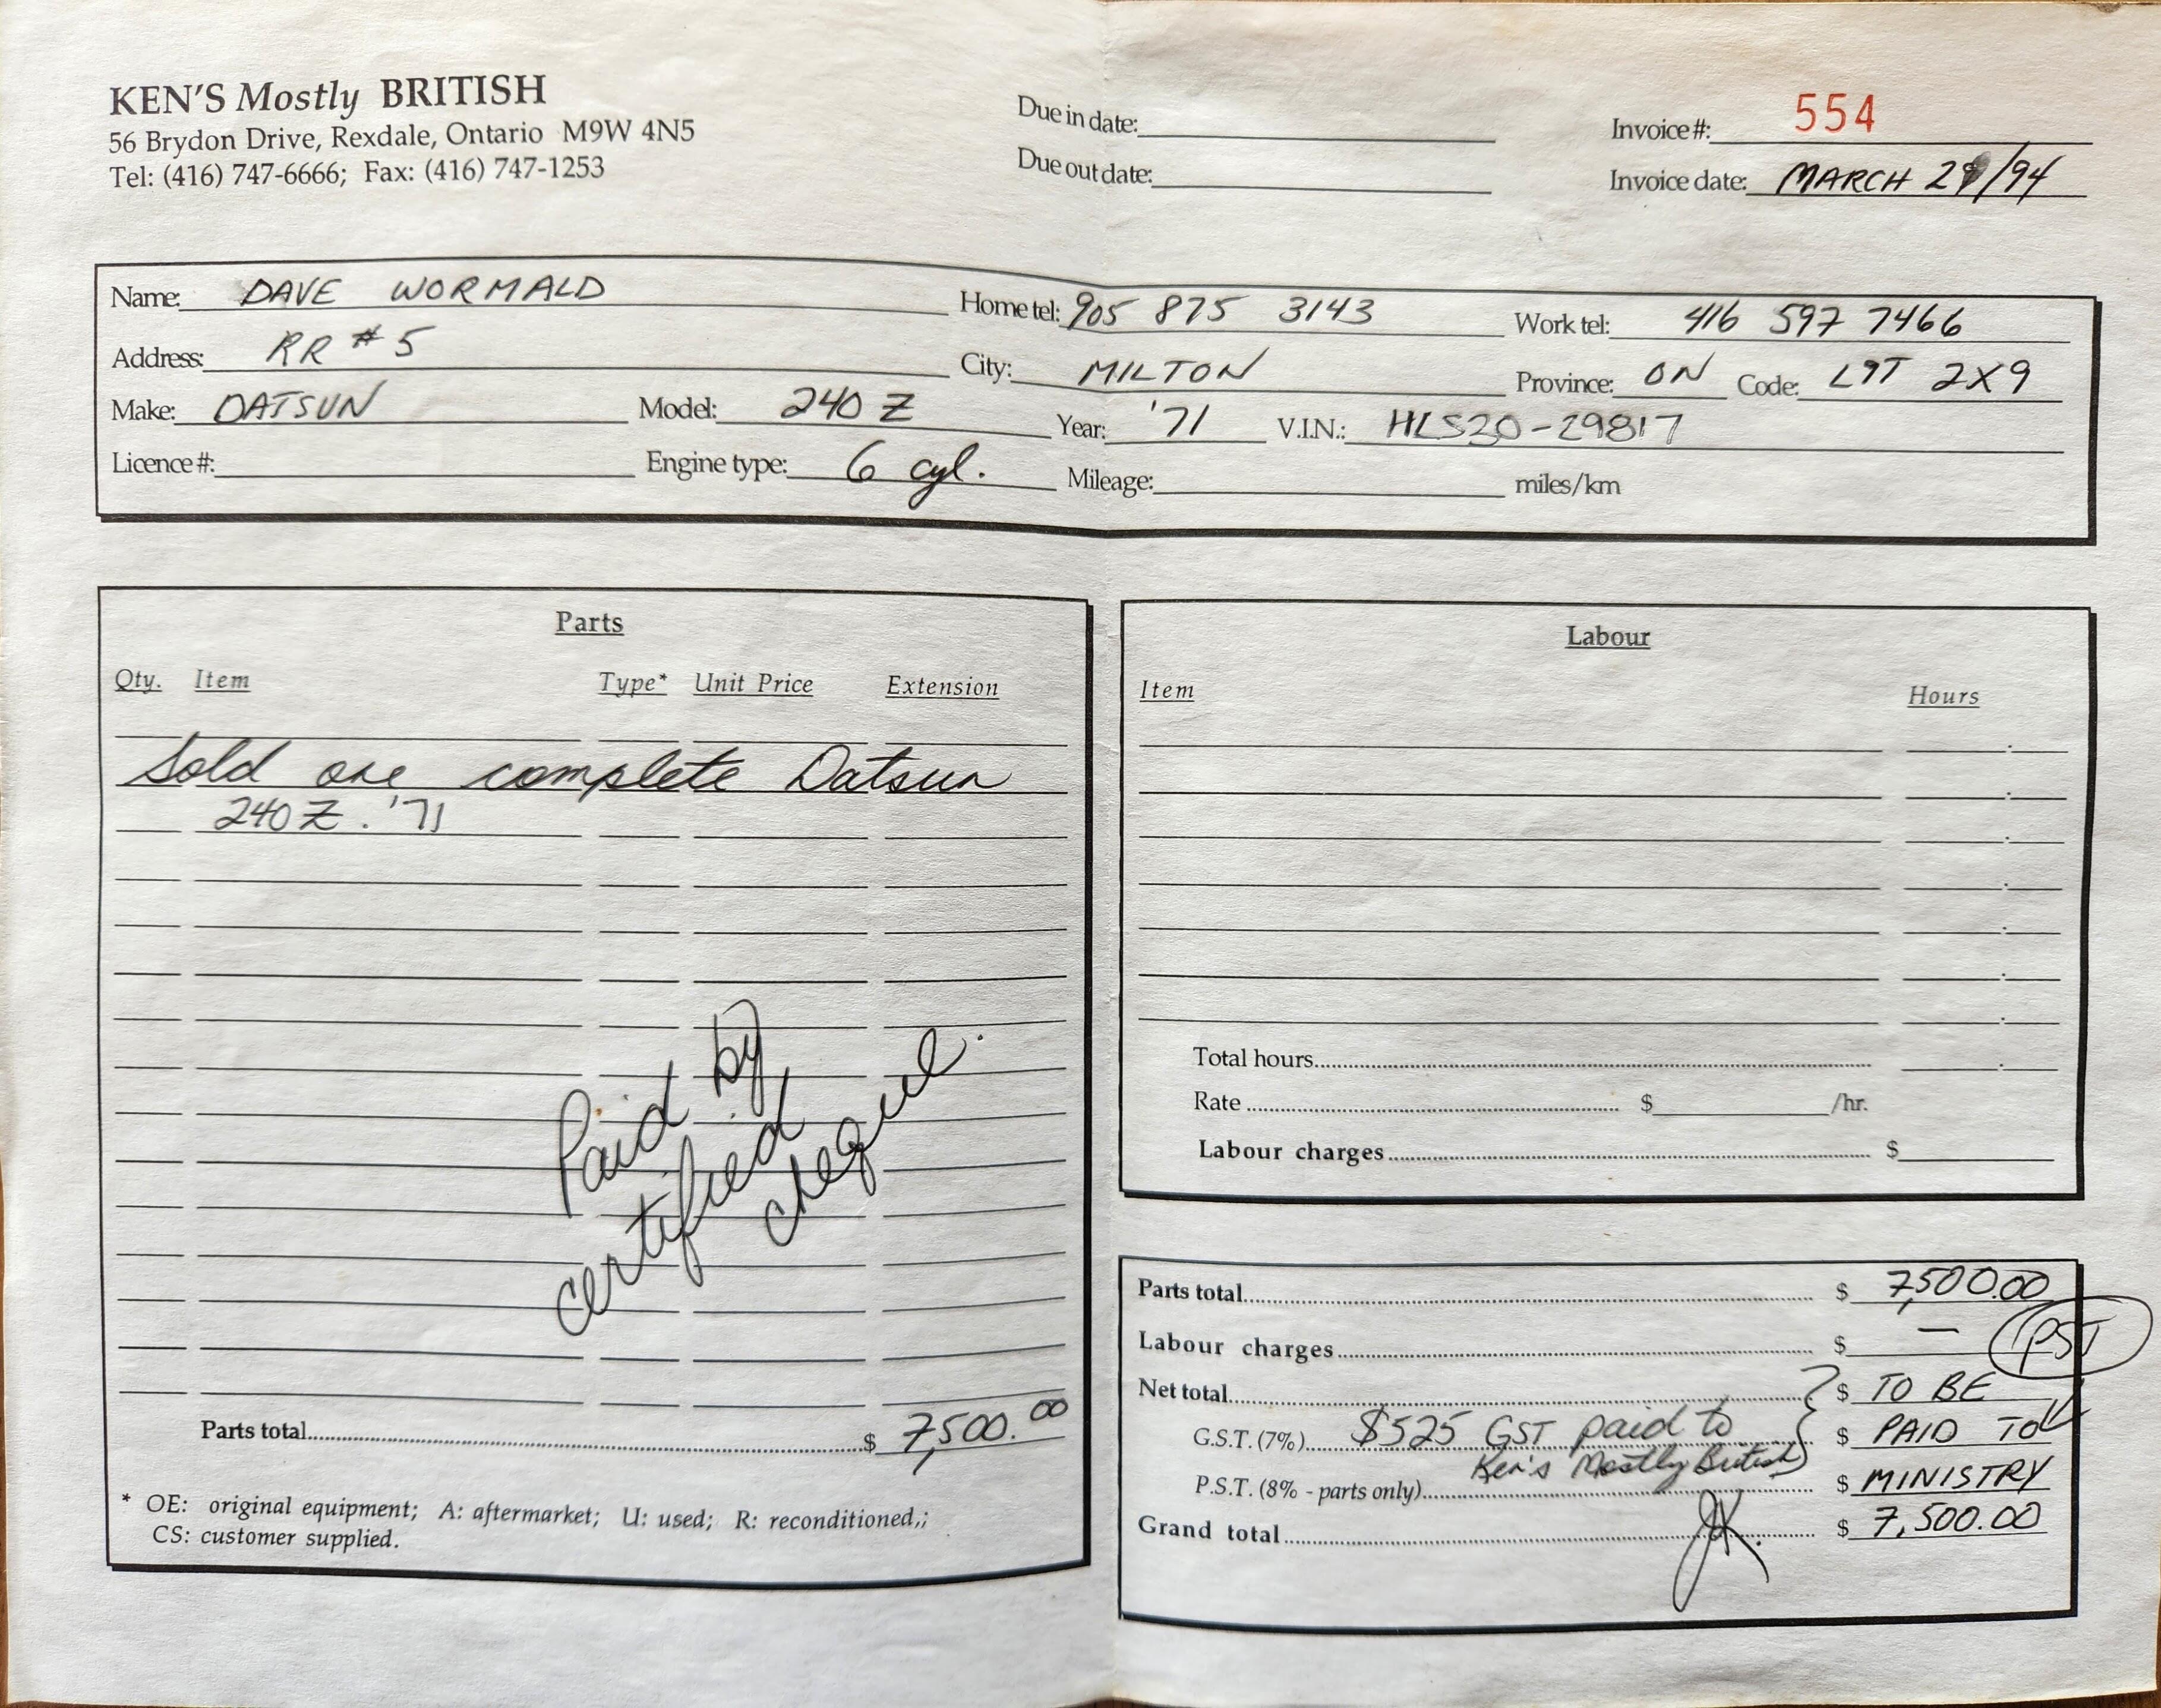 KEN'S Mostly BRITISH
56 Brydon Drive, Rexdale, Ontario M9W 4N5
Tel: (416) 747-6666; Fax: (416) 747-1253
Due in date:
Due out date:
Invoice #: 554
Invoice date: MARCH 29/94
Name: DAVE WORMALD Home tel: 905 875 3143 Work tel: 416 597 7466
Address: RR #5 City: MILTON Province: ON Code: L9T 2X9
Make: DATSUN Model: 240 Z Year: '71 V.I.N.: HLS30-29817
Licence #: Engine type: 6 cyl. Mileage: miles/km
Parts
Qty. Item Type* Unit Price Extension
Sold one complete Datsun
240 Z. '71
Paid by
certified
cheque.
Parts total $ 7,500.00
* OE: original equipment; A: aftermarket; U: used; R: reconditioned,;
CS: customer supplied.
Labour
Item Hours
Total hours
Rate $ /hr.
Labour charges $
Parts total $ 7,500.00
Labour charges $ — PST
Net total $ TO BE
G.S.T. (7%) $525 GST paid to $ PAID TO
Ken's Mostly British
P.S.T. (8% - parts only) $ MINISTRY
Grand total JK. $ 7,500.00